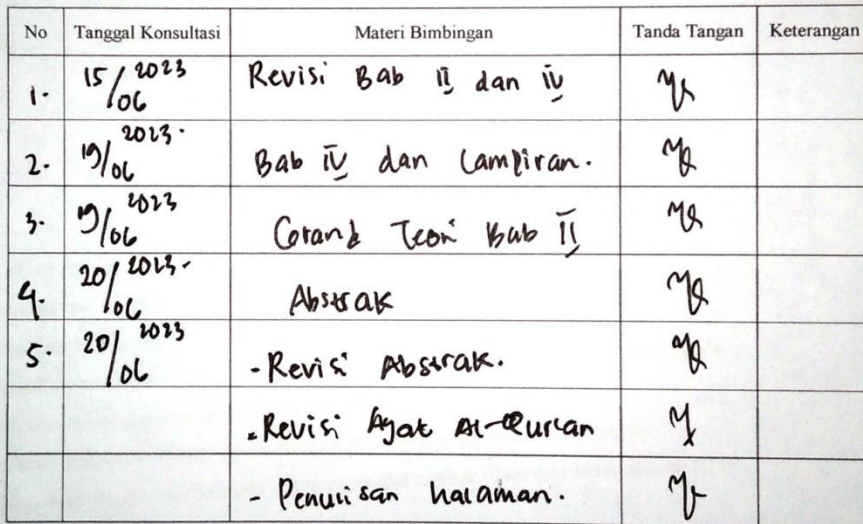 No Tanggal Konsultasi Materi Bimbingan Tanda Tangan Keterangan
1. 15/06 2023 Revisi Bab II dan IV
2. 19/06 2023. Bab IV dan Lampiran.
3. 19/06 2023 Grand Teori Bab II
4. 20/06 2023. Abstrak
5. 20/06 2023 - Revisi Abstrak.
- Revisi Ayat Al-Qur'an
- Penulisan halaman.